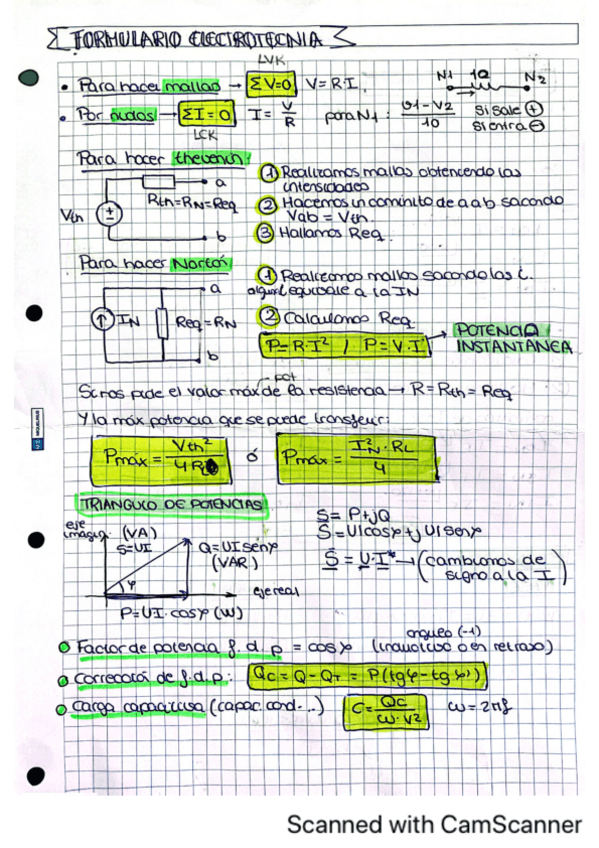 FORMULARIO ELECTROTECNIA
LVK
• Para hacer mallas → ΣV=0 V=R·I.
N1 1Ω N2
• Por nudos → ΣI=0 I=V/R para N1: (V1-V2)/10 si sale ⊕ si entra ⊖
LCK
Para hacer thevenin:
a
Rth=RN=Req
Vth
b
① Realizamos mallas obteniendo las intensidades
② Hacemos un caminito de a a b sacando Vab = Vth.
③ Hallamos Req.
Para hacer Norton:
a
IN Req=RN
b
① Realizamos mallas sacando las i.
alguna equivale a la IN
② Calculamos Req
P=R·I² / P=V·I → POTENCIA INSTANTÁNEA
Si nos pide el valor máx de la resistencia → R=Rth=Req
Y la máx potencia que se puede transferir:
Pmáx = Vth²/4RL ó Pmáx = I²N·RL/4
TRIANGULO DE POTENCIAS
eje imagin. (VA)
S=UI
Q=UI senφ (VAR)
φ
eje real
P=UI·cosφ (W)
S=P+jQ
S=UIcosφ+jUIsenφ
S=U·I* → (cambiamos de signo a la I)
angulo (-1)
Factor de potencia f.d.p = cosφ (inductivo o en retraso)
Corrección de f.d.p: QC=Q-QT=P(tgφ-tgφ')
Carga capacitiva (capac. cond...) C=QC/ω·V² ω=2πf
Scanned with CamScanner